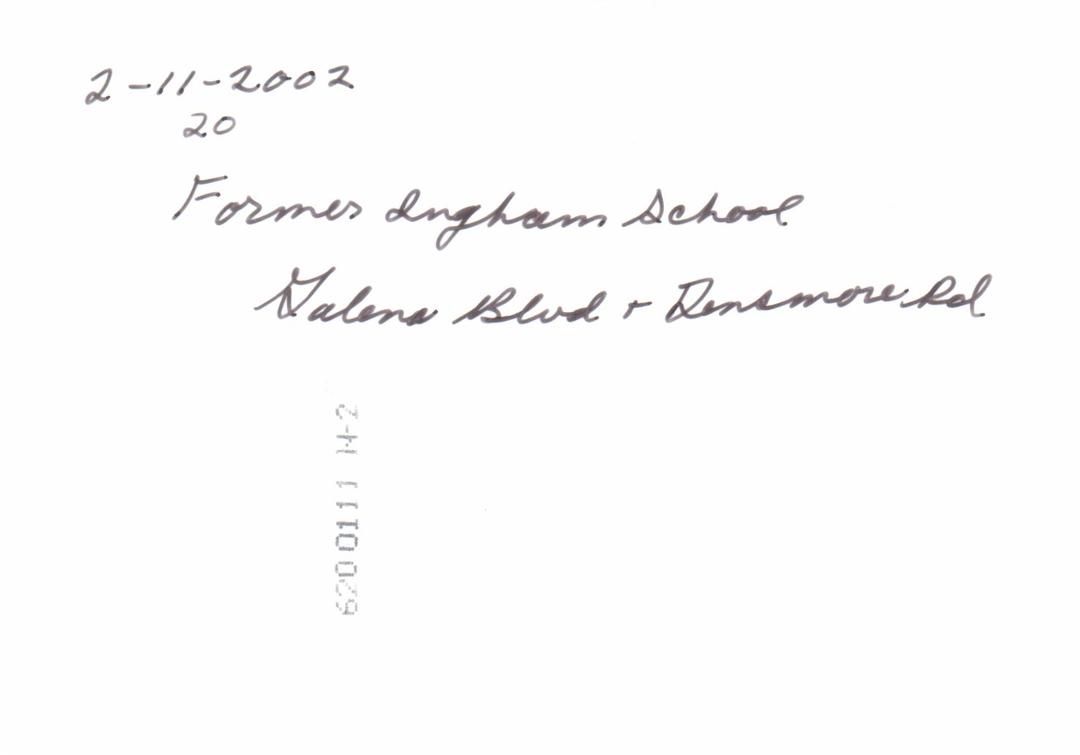 2-11-2002
20
Former Ingham School
Galena Blvd + Densmore Rd
620 0111 14-2